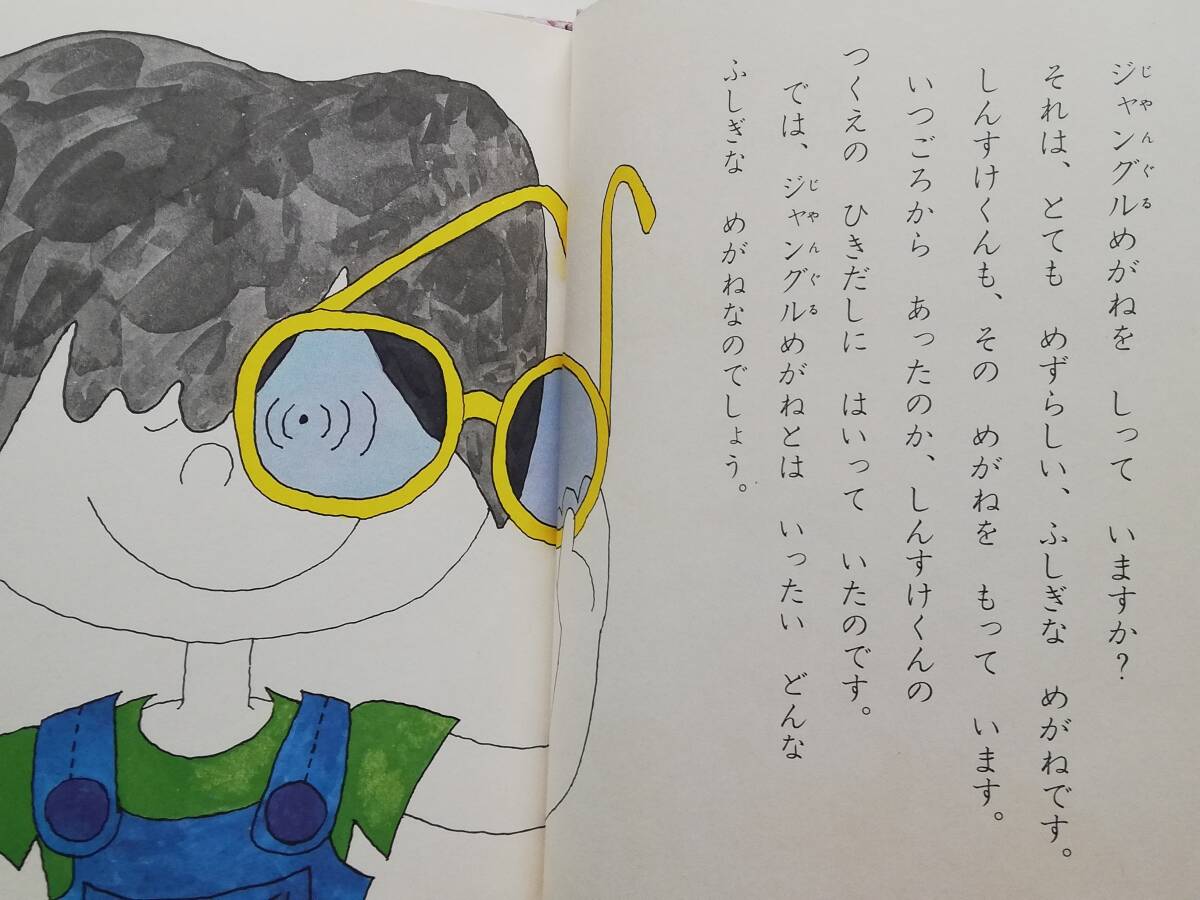 ジャングルめがねを　しって　いますか？
それは、とても　めずらしい、ふしぎな　めがねです。
しんすけくんも、その　めがねを　もって　います。
いつごろから　あったのか、しんすけくんの
つくえの　ひきだしに　はいって　いたのです。
では、ジャングルめがねとは　いったい　どんな
ふしぎな　めがねなのでしょう。